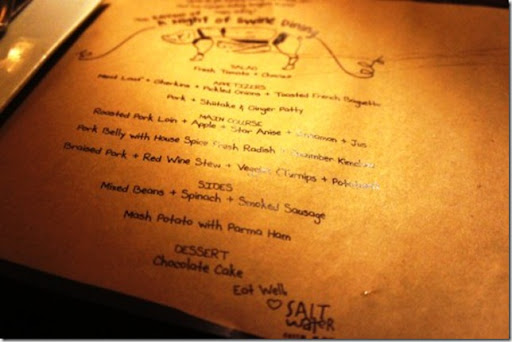 A Night of Swine Dining
SALAD
Fresh Tomato + Chorizo
APPETIZERS
Meat Loaf + Gherkins + Pickled Onions + Toasted French Baguette
Pork + Shiitake & Ginger Patty
MAIN COURSE
Roasted Pork Loin + Apple + Star Anise + Cinnamon + Jus
Pork Belly with House Spice Fresh Radish + Cucumber Kimchi
Braised Pork + Red Wine Stew + Veggie + Potatoes
SIDES
Mixed Beans + Spinach + Smoked Sausage
Mash Potato with Parma Ham
DESSERT
Chocolate Cake
Eat Well.
SALT
water